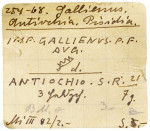 254-68. Gallienus,
Antiochia, Pisidia.
IMP. GALLIENUS. P. F.
AVG.
d.
ANTIOCHIO. S. R. 21
7g.
Mi III 82/2.- S. 8.-